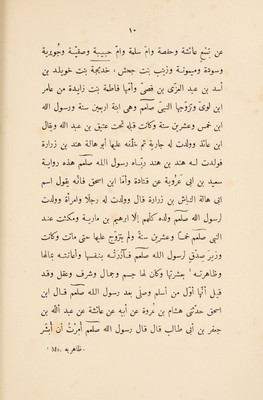 ١٠
عن تِسْعٍ عائشة وحفصة وامّ سلمة وامّ حبيبة وصفيّة وجُويرية
وسودة وميمونة وزينب بنت جحش، خديجة بنت خويلد بن
أسد بن عبد العزّى بن قصىّ وامّها فاطمة بنت زايدة من عامر
ابن لوىّ وتزوّجها النبى صلعم وهى ابنة اربعين سنة ورسول الله
ابن خمس وعشرين سنة وكانت قبله تحت عتيق بن عبد الله ويقال
ابن عائذ وولدت له جارية ثم خلّفه عليها أبو هالة هند بن زرارة
فولدت له هند بن هند ربّاه رسول الله صلعم هذه رواية
سعيد بن ابى عَرُوبة عن قتادة وأمّا ابن اسحق فانّه يقول اسم
ابى هالة النبّاش بن زرارة قال وولدت له رجلًا وامرأة وولدت
لرسول الله صلعم ولده كلّهم إلّا ابرهيم بن مارية ومكثت عند
النبى صلعم خمسًا وعشرين سنةً ولم يتزوّج عليها حتى ماتت وكانت
وزيرَ صدْقٍ لرسول الله صلعم فآزرته بنفسها وأعانته بمالها
وظاهرته ¹ بعشرتها وكان لها جسم وجمال وشرف وعقل وقد
قيل أنّها أوّل من أسلم وصلّى بعد رسول الله صلعم قال ابن
اسحق حدّثنى هشام بن عروة عن أبيه عن عائشة عن عبد الله بن
جعفر بن أبى طالب قال قال رسول الله صلعم أمِرْتُ أن أبشّر
¹ Ms. ظاهريه.